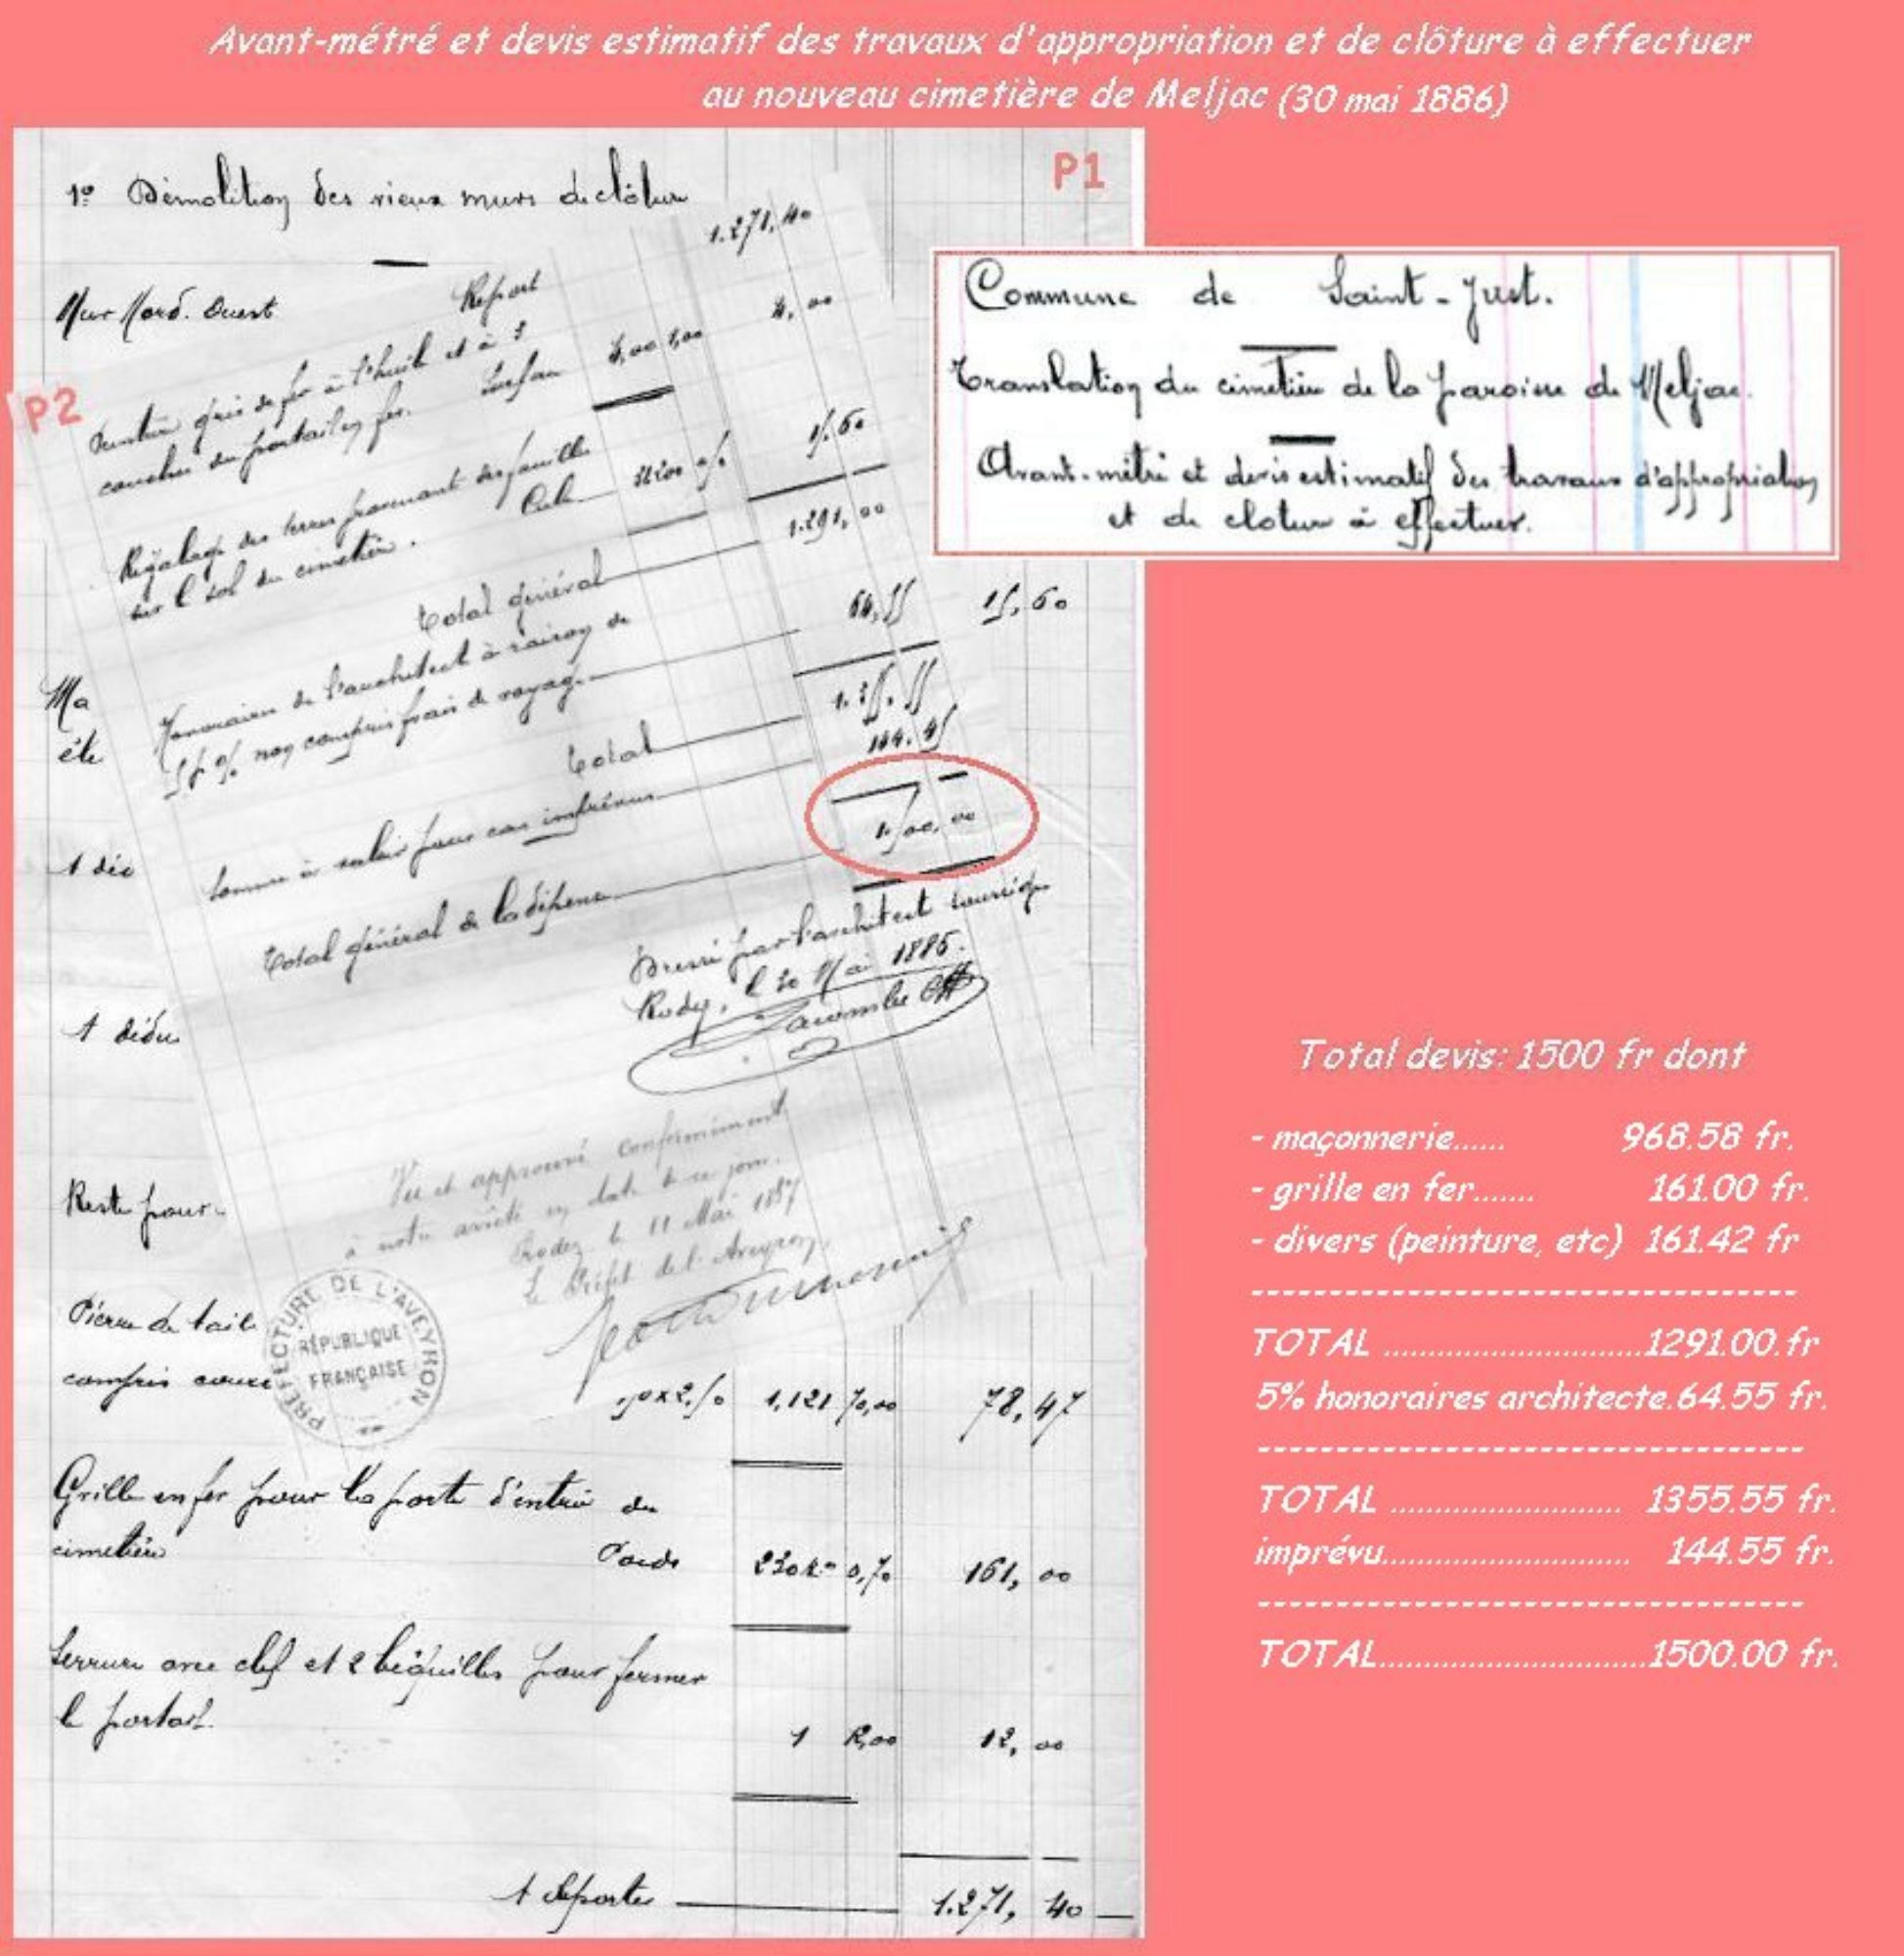 Avant-métré et devis estimatif des travaux d'appropriation et de clôture à effectuer
au nouveau cimetière de Meljac (30 mai 1886)
P1
1º Démolition des vieux murs de clôture
Mur Nord. Ouest
15,60
Ma
éle
1 déc
1 dédu
Reste pour
Pierre de taill
compris
1,121 70,00 78,47
Grille en fer pour la porte d'entrée du
cimetière Poids 230k 0,70 161,00
Serrure avec clef et 2 béquilles pour fermer
le portail.
1 12,00 12,00
A Reporter 1.271,40
P2
Report 1.271,40
Peinture gris de fer à l'huile et à 3
couches du portail en fer. Surface 4,00 1,00 4,00
Régalage des terres provenant des fouilles
sur le sol du cimetière. Cube 15,60
Total général 1.291,00
Honoraires de l'architecte à raison de
5 p % non compris frais de voyage 64,55
Total 1.355,55
Somme à valoir pour cas imprévus 144.45
Total général de la dépense 1.500,00
Dressé par l'architecte soussigné
Rodez, le 30 Mai 1886.
Lacombe
Vu et approuvé conformément
à notre arrêté en date de ce jour.
Rodez le 11 Mai 1887
Le Préfet de l'Aveyron,
PRÉFECTURE DE L'AVEYRON
RÉPUBLIQUE
FRANÇAISE
Commune de Saint-Just.
Translation du cimetière de la paroisse de Meljac.
Avant-métré et devis estimatif des travaux d'appropriation
et de cloture à effectuer.
Total devis: 1500 fr dont
- maçonnerie...... 968.58 fr.
- grille en fer....... 161.00 fr.
- divers (peinture, etc) 161.42 fr
-----------------------------------
TOTAL ............................1291.00.fr
5% honoraires architecte.64.55 fr.
-----------------------------------
TOTAL ......................... 1355.55 fr.
imprévu........................... 144.55 fr.
-----------------------------------
TOTAL.............................1500.00 fr.